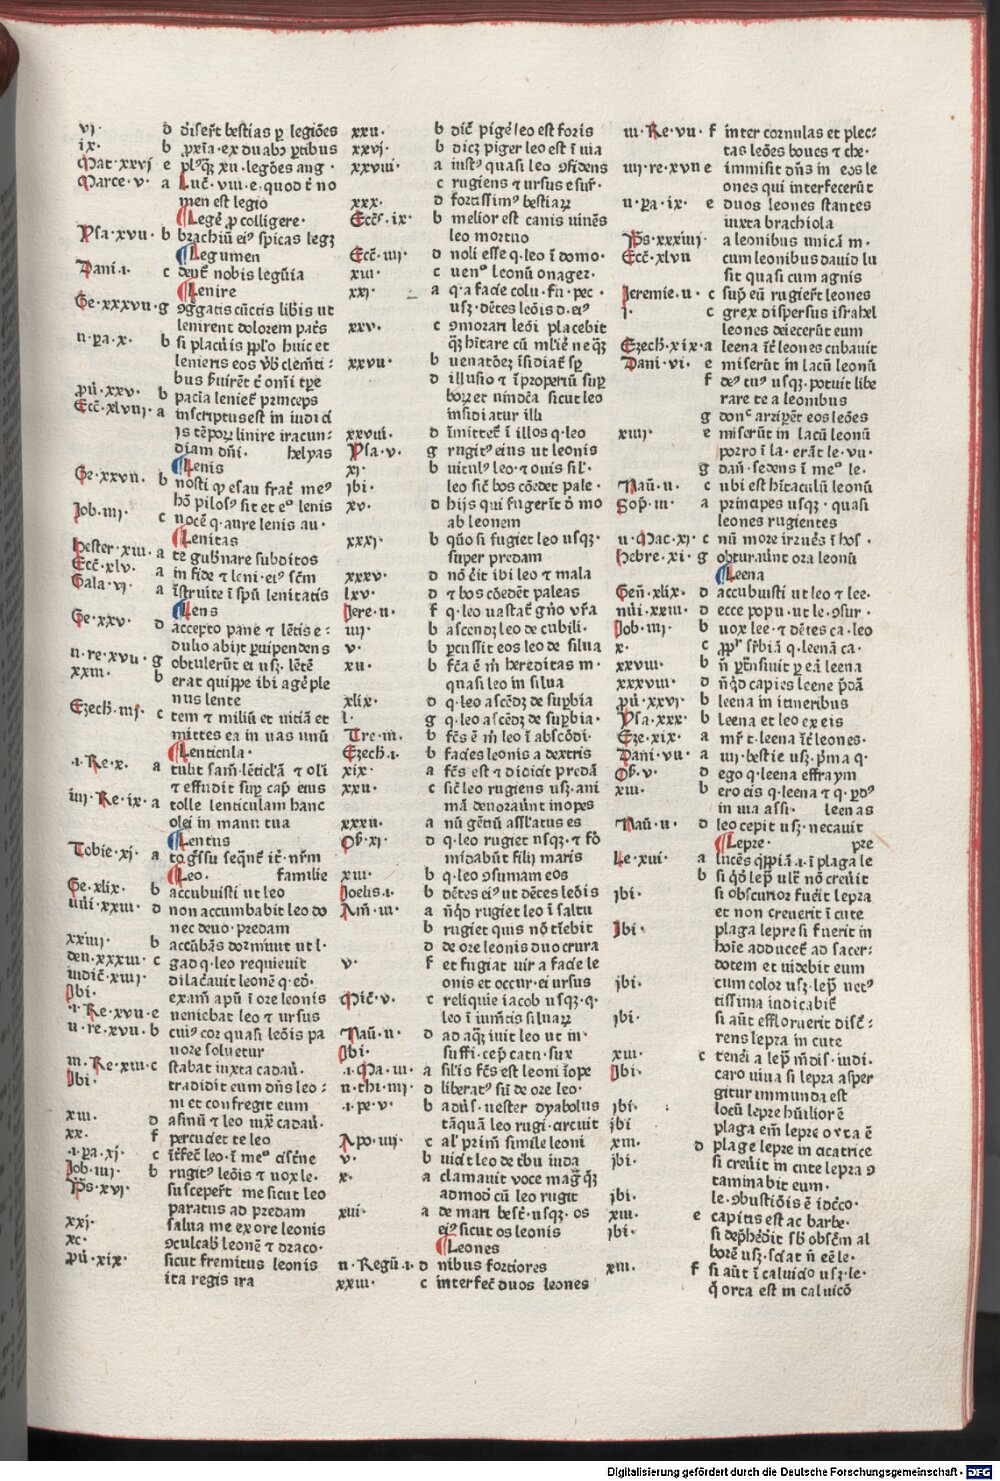 vi· d diſert̄ beſtias ꝑ legiões
ix· b ꝓxīa·ex duabꝰ ꝑtibus
Mat·xxvi e plꝰqȝ xii·legões ang·
Marce·v· a Luc̄·viii·e·quod t̄ no
men eſt legio
¶Legē ꝓ colligere·
Pſa·xvii· b brachiū eiꝰ ſpicas legȝ
¶Legumen
Dani·i· c dent̄ nobis legūia
¶Lenire
Ge·xxxvii·g ꝯggatis cūctis libīs ut
lenirent dolorem patīs
ii·pa·x· b ſi placūis pplo huic et
lenieris eos vb̄ clemēti-
bus ſuirēt t̄ omī tpe
pū·xxv· b pacia leniet̄ princeps
Ecc̄·xlviii·a inſcriptus eſt in iudici
is tēpoꝝ linire iracun-
diam dn̄i· helyas
¶Lenis
Ge·xxvii· b noſti ꝙ eſau frat̄ meꝰ
hō piloſꝰ ſit et eº lenis
Job·iiii· c nocē q·aure lenis au·
¶Lenitas
Heſter·xiii·a te gub̄nare ſubditos
Ecc̄·xlv· a in fide ⁊ leni·eiꝰ ſc̄m
Gala·vi· a īſtruite ī ſpū lenitatis
¶Lens
Ge·xxv· d accepto pane ⁊ lētis e-
dulio abijt ꝑuipendens
ii·re·xvii·g obtulerūt ei uſȝ·lētē
xxiii· b erat quippe ibi agē ple
nus lente
Ezech·iiii· c tem ⁊ miliū et uitiā et
mittes ea in uas unū
¶Lenticula·
·i·Re·x· a tulit ſam̄·lēticl̄ā ⁊ oli
⁊ effudit ſuꝑ cap̄ eius
iiii·Re·ix·a tolle lenticulam hanc
olei in manu tua
¶Lentus
Tobie·xi· a to gſſu ſeqn̄t̄ it̄·nr̄m
¶Leo· familie
Ge·xlix· b accubuiſti ut leo
nūi·xxiii· d non accumbabit leo do
nec devo·predam
xxiiii· b accūbās dormiuit ut l·
deu·xxxiii·c gad q·leo requieuit
iudic̄·xiiii· dilac̄auit leonē q·ed·
Ibi· exam̄ apū ī ore leonis
·i·Re·xvii·e ueniebat leo ⁊ urſus
ii·re·xvii·b cuiꝰ cor quaſi leōis pa
uore ſoluetur
iii·Re·xiii·c ſtabat iuxta cadaū·
Ibi· tradidit eum dn̄s leo-
ni et confregit eum
xiii· d aſinū ⁊ leo iuxͣ cadaū·
xx· f percuciet te leo
·i·pa·xi· c īt̄fec̄ leo·ī meº ciſt̄ne
Job·iiii· b rugitꝰ leōis ⁊ uox le·
P̄s·xvi· ſuſcepert̄ me ſicut leo
paratus ad predam
xxi· ſalua me ex ore leonis
xc· ꝯculcab̄ leonē ⁊ draco·
pū·xix· ſicut fremitus leonis
ita regis ira
xxii· b dic̄ pigē leo eſt foris
xxvi· b dicȝ piger leo eſt ī uia
xxviii· a iuſtꝰ quaſi leo ꝯfidens
c rugiens ⁊ urſus eſur̄·
xxx· d fortiſſimꝰ beſtiaꝝ
Ecc̄s·ix· b melior eſt canis uiuēs
leo mortuo
Ecc̄·iiii· d noli eſſe q·leo ī domo·
xiii· c uenº leonū onager·
xxi· a q·a facie colu·fu·pec·
uſȝ·dētes leōis d·eiꝰ
xxv· c ꝯmorari leōi placebit
qȝ hītare cū mlīe neqȝ
xxvii· b uenatōeȝ īſidiat̄ ſꝑ
d illuſio ⁊ īproperiū ſuꝑ
boꝝ et uindc̄a ſicut leo
inſidiatur illi
xxviii· d īmittet̄ ī illos q·leo
Pſa·v· g rugitꝰ eius ut leonis
xi· b uitulꝰ leo·⁊ ouis ſil̄·
ibi· leo ſic̄ bos cōedet pale·
xv· d hijs qui fugerīt d mo
ab leonem
xxxi· b quō ſi rugiet leo uſqȝ·
ſuper predam
xxxv· d nō ēit ibi leo ⁊ mala
lxv· d ⁊ bos cōedēt paleas
Jere·ii· f q·leo uaſtat̄ gn̄o vr̄a
iiii· b aſcendȝ leo de cubili·
v· b ꝑcuſſit eos leo de ſilua
xii· b fc̄a ē m̄ hereditas m·
quaſi leo in ſilua
xlix· d q·leo aſcēdȝ de ſuꝑbia
l· g q·leo aſcēdȝ de ſuꝑbia·
Tre·iii· b fc̄s ē m̄ leo ī abſcōdi·
Ezech·i· b facies leonis a dextris
xix· a fc̄s eſt ⁊ didicit predā
xxii· c ſic̄ leo rugiens uſȝ·ani
mā deuoraūnt inopes
xxxii· a nū gētiū aſſl̄atus es
Oſ·xi· d q·leo rugiet uſqȝ·⁊ fo
midabūt filij maris
xiii· b q·leo ꝯſumam eos
Joelis·i· b dētes eiꝰ ut dētes leōis
Am̄·iii· a nūqd rugiet leo ī ſaltu
b rugiet quis nō tīebit
d de ore leonis duo crura
v· f et fugiat uir a facie le
onis et occur·ei urſus
Mic̄·v· c reliquie iacob uſqȝ·q·
leo ī iumētis ſiluaꝝ
Naū·ii· d ad aqȝ iuit leo ut in·
Ibi· ſuffi·cep̄ catu·ſux
·i·Ma·iii· a ſilīs fc̄s eſt leoni īope
ii·thi·iiii· d liberatꝰ ſū de ore leo·
·i·pe·v· b adūs·ueſter dyabolus
tāquā leo rugi·circuit
Apo·iiii· c al̄ primū ſimile leoni
v· b uicit leo de t̄bu iuda
x· a clamauit voce magȝ qȝ
admod̄ cū leo rugit
xiii· a de mari beſt̄·uſqȝ·os
eiꝰ ſicut os leonis
¶Leones
ii·Regū·i·d nibus fortiores
xxiii· c interfec̄ duos leones
iii·Re·vii·f inter cornulas et plec-
tas leões boues ⁊ che·
iiii·re·xvii e immiſit dn̄s in eos le
ones qui interfecerūt
ii·pa·ix· e duos leones ſtantes
iuxta brachiola
P̄s·xxxiiii· a leonibus unicā m·
Ecc̄·xlvii cum leonibus dauid lu
ſit quaſi cum agnis
Jeremie·ii· c ſuꝑ eū rugiert̄ leones
l· c grex diſperſus iſrahel
leones deiecerūt eum
Ezech·xix·a leena īt̄ leones cubauit
Dani·vi· e miſerūt in lacū leonū
f deꝰ tuꝰ uſqȝ·potuit libe
rare te a leonibus
g donᶜ arriꝑēt eos leões
xiiii· e miſerūt in lacū leonū
porro ī la·erāt le·vii·
g dan̄·ſedens ī meº le·
Naū·ii· c ubi eſt hītaculū leonū
Sop̄·iii· a principes uſqȝ·quaſi
leones rugientes
ii·Mac·xi·c nū more irruēs ī hoſ·
Hebre·xi·g obturaūnt ora leonū
¶Leena
Gen̄·xlix· d accubuiſti ut leo ⁊ lee·
nūi·xxiii· d ecce popu·ut le·ꝯſur·
Job·iiii· b uox lee·⁊ dētes ca·leo
x· c ꝓpt̄ ſꝑbiā q·leenā ca·
xxviii· b n̄ ꝑtn̄ſiuit ꝑ eā leena
xxxviii· d nūqd capies leene p̄dā
pū·xxvi· b leena in itineribus
Pſa·xxx· b leena et leo ex eis
Eze·xix· a mr̄ t·leena īt̄ leones·
Dani·vii· a iiii·beſtie uſȝ·p̄ma q·
Oſ·v· d ego q·leena effraym
xiii· b ero eis q·leena ⁊ q·pdꝰ
in uia aſſi· leenas
Naū·ii· d leo cepit uſȝ·necauit
¶Lepre· pre
Le·xiii· a lucēs qppiā·i·ī plaga le
b ſi qd lep̄ ult̄ nō creūit
ibi· ſi obſcurior fueīt lepra
et non creuerit ī cute
Ibi· plaga lepre ſi fuerit in
hoīe adducet̄ ad ſacer-
dotem et uidebit eum
ibi· cum color uſȝ·lep̄ uetꝰ
tiſſima iudicabit̄
ibi· ſi aūt effloruerit diſc̄-
rens lepra in cute
xiii· c teneri a lep̄ mūdis·iudi·
Ibi· caro uiua ſi lepra aſper
gitur immunda eſt
ibi· locū lepre hūlior ē
ibi plaga em̄ lepre orta ē
xiii· d plage lepre in cicatrice
ibi· ſi creūit in cute lepra ꝯ
taminabit eum·
ibi· le·ꝯbuſtiōis ē idc̄co·
xiii· e capitis eſt ac barbe·
ibi· ſi dep̄hēdit ſb̄ obſc̄m al
borē uſȝ·ſciat n̄ eē le·
xiii· f ſi aūt ī caluicio uſȝ·le·
q̄ orta eſt in caluicō
Digitalisierung gefördert durch die Deutsche Forschungsgemeinschaft - DFG